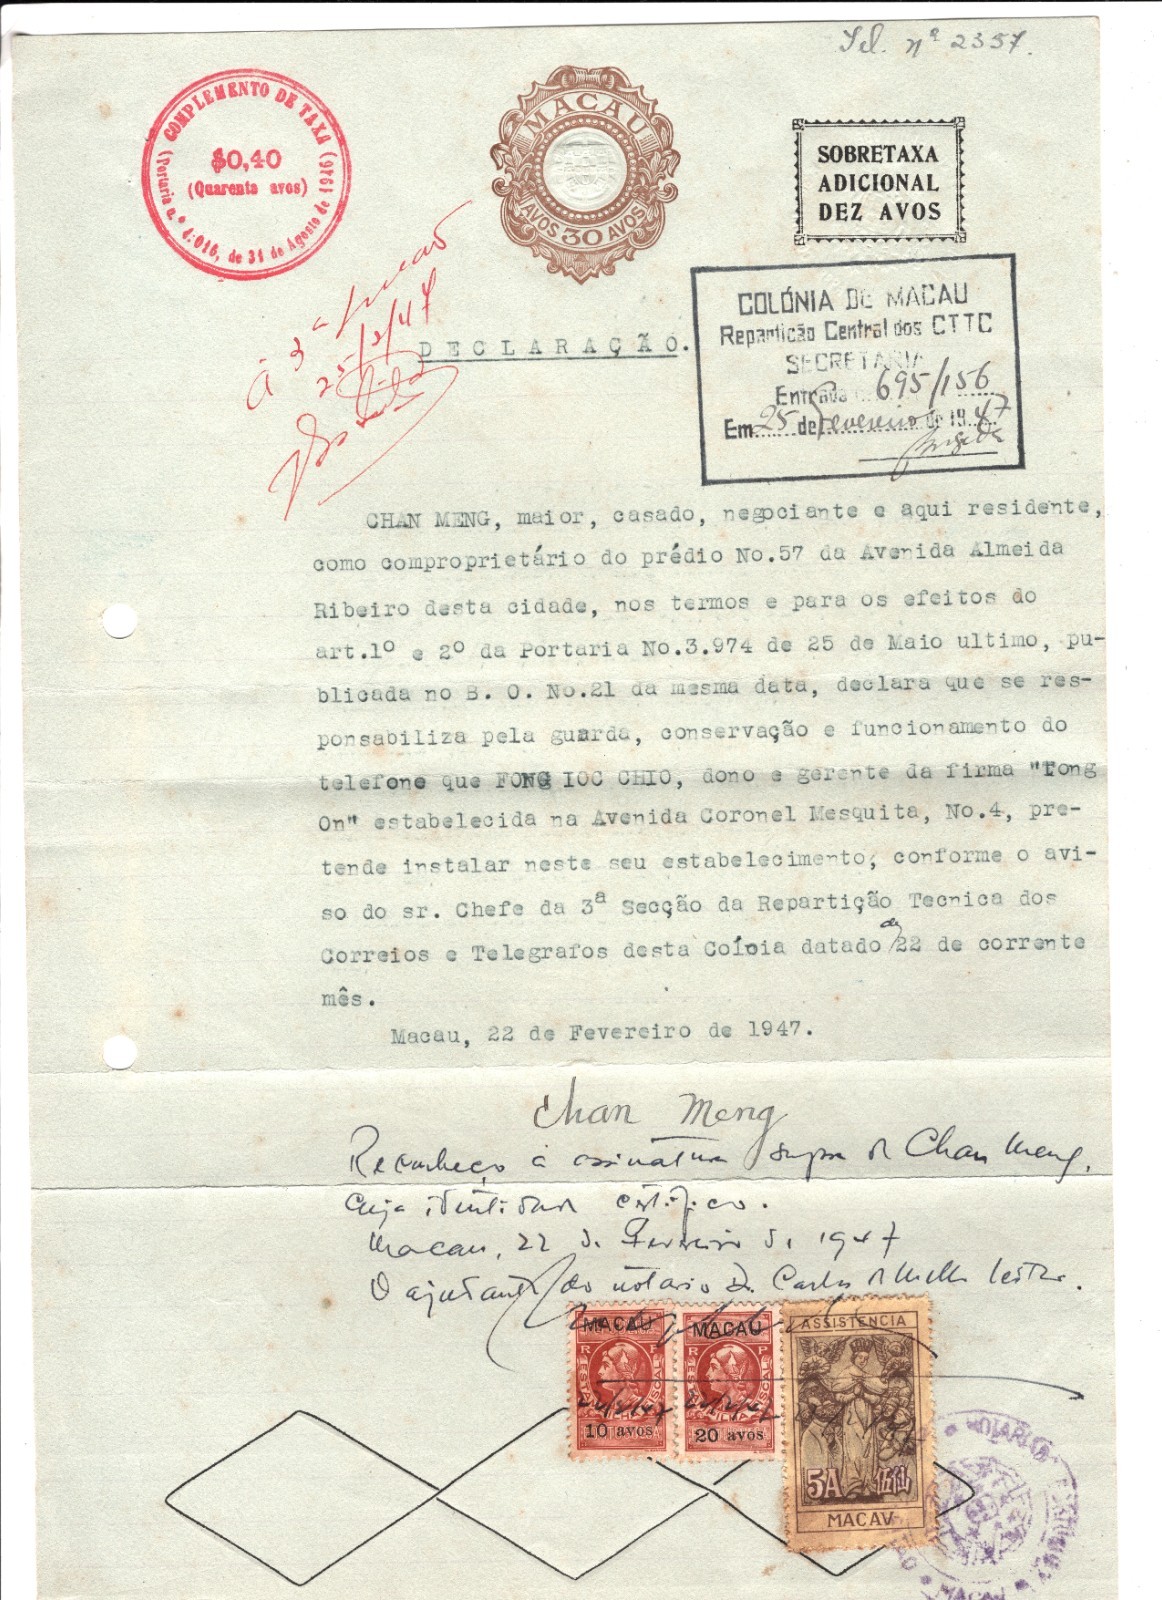 Tel. nº 2357.
COMPLEMENTO DE TAXA
$0,40
(Quarenta avos)
(Portaria n.º 4:016, de 31 de Agosto de 1946)
MACAU
AVOS 30 AVOS
SOBRETAXA
ADICIONAL
DEZ AVOS
COLÓNIA DE MACAU
Repartição Central dos CTTC
SECRETARIA
Entrada 695/156
Em 25 de Fevereiro de 1947
À 3ª secção
25/2/47
DECLARAÇÃO.
CHAN MENG, maior, casado, negociante e aqui residente,
como comproprietário do prédio No.57 da Avenida Almeida
Ribeiro desta cidade, nos termos e para os efeitos do
art.1º e 2º da Portaria No.3.974 de 25 de Maio ultimo, pu-
blicada no B. O. No.21 da mesma data, declara que se res-
ponsabiliza pela guarda, conservação e funcionamento do
telefone que FONG IOC CHIO, dono e gerente da firma "Tong
On" estabelecida na Avenida Coronel Mesquita, No.4, pre-
tende instalar neste seu estabelecimento, conforme o avi-
so do sr. Chefe da 3ª Secção da Repartição Tecnica dos
Correios e Telegrafos desta Colóia datado de 22 de corrente
mês.
Macau, 22 de Fevereiro de 1947.
Chan Meng
Reconheço a assinatura supra de Chan Meng,
cuja identidade certifico.
Macau, 22 de Fevereiro de 1947
O ajudante do notario Dr. Carlos de Mello Leitão.
MACAU
10 avos
22/2/47
MACAU
20 avos
22/2/47
ASSISTENCIA
5A 伍仙
MACAV
MACAU